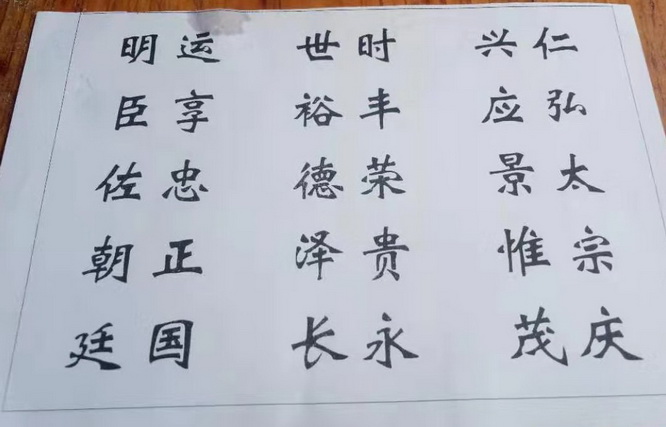 仁弘太宗庆
兴应景惟茂
时丰荣贵永
世裕德泽长
运享忠正国
明臣佐朝廷